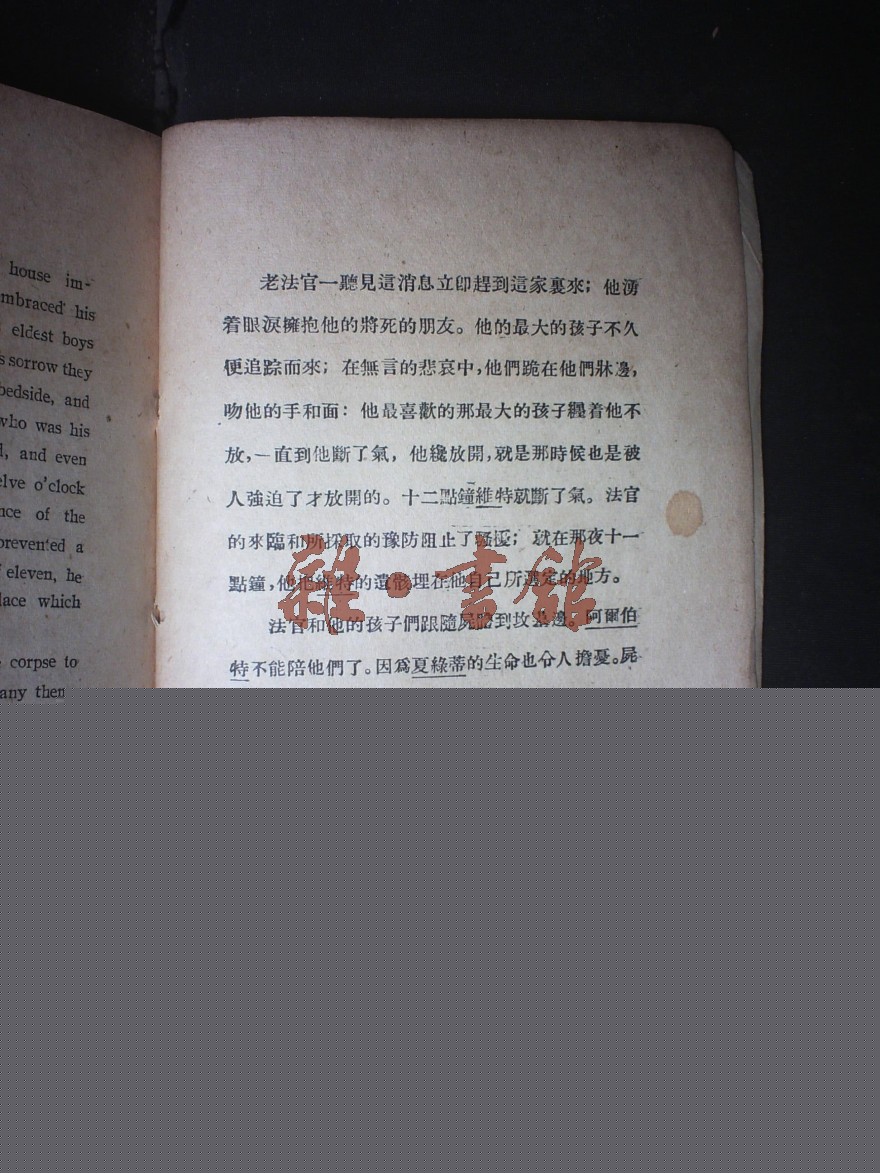 house im-
mbraced his
eldest boys
s sorrow they
bedside, and
who was his
, and even
elve o'clock
nce of the
prevented a
eleven, he
lace which
corpse to
any then
老法官一聽見這消息立卽趕到這家裏來；他湧
着眼淚擁抱他的將死的朋友。他的最大的孩子不久
便追踪而來；在無言的悲哀中，他們跪在他們牀邊，
吻他的手和面：他最喜歡的那最大的孩子纒着他不
放，一直到他斷了氣，他纔放開，就是那時候也是被
人強迫了才放開的。十二點鐘維特就斷了氣。法官
的來臨和所採取的豫防阻止了騷擾；就在那夜十一
點鐘，他把維特的遺骸埋在他自己所選定的地方。
法官和他的孩子們跟隨屍體到坟墓邊。阿爾伯
特不能陪他們了。因爲夏綠蒂的生命也令人擔憂。屍
雜·書館